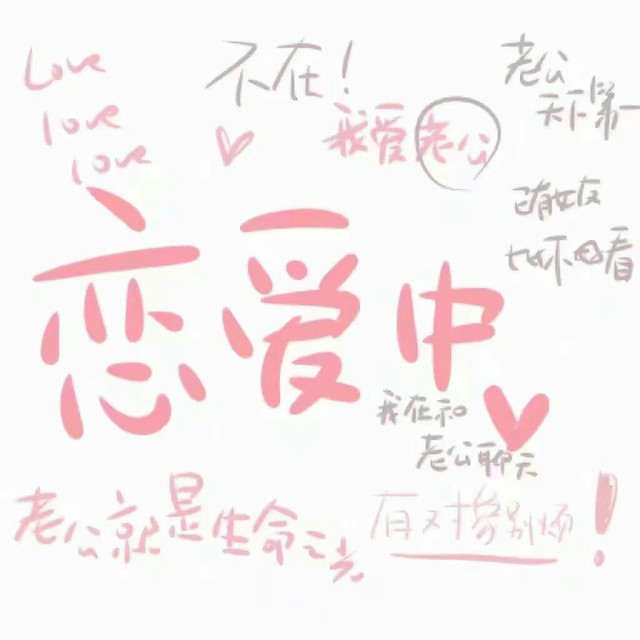 Love
love
love
不在！
我爱老公
老公
天下第一
已有女友
比你好看
恋爱中
我在和
老公聊天
老公就是生命之光
有对象别烦！